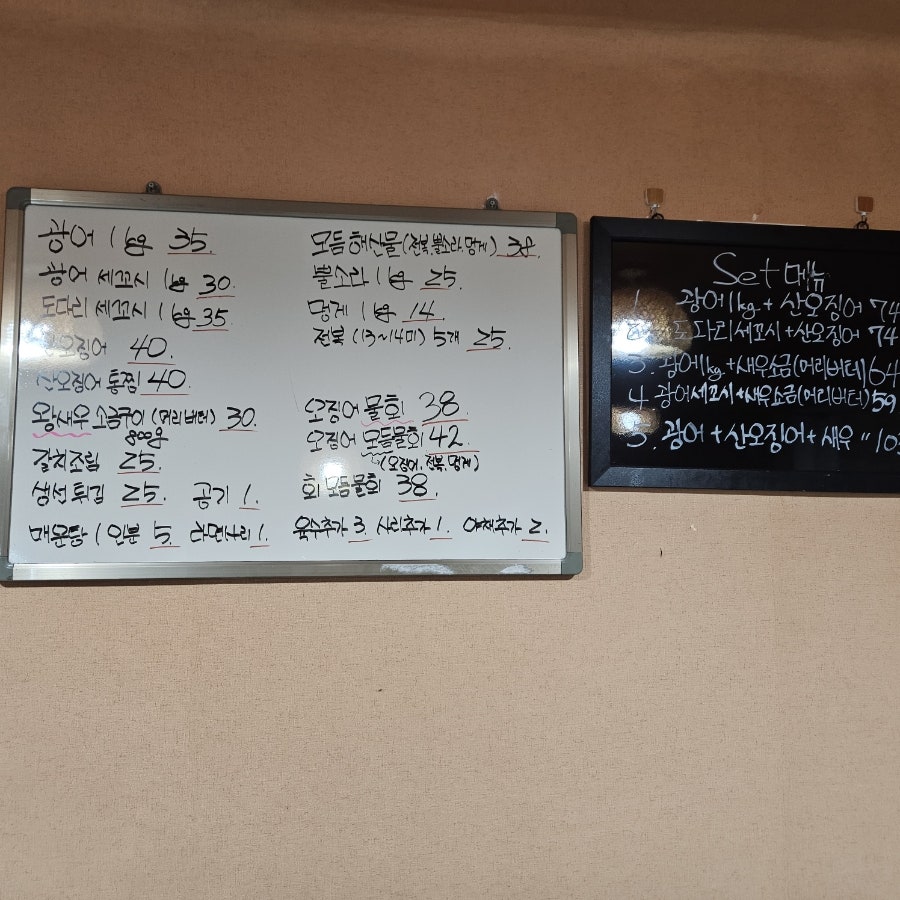 광어 1kg 35.
광어 세꼬시 1kg 30
도다리 세꼬시 1kg 35.
산오징어 40.
산오징어 통찜 40.
왕새우 소금구이 (머리버터) 30.
800g
갈치조림 25.
생선튀김 25. 공기 1.
매운탕 1인분 5. 라면사리 1.
모듬해산물 (전복, 뿔소라, 멍게) 38.
뿔소라 1kg 25.
멍게 1kg 14.
전복 (13~14미) 5개 25.
오징어 물회 38.
오징어 모듬물회 42.
(오징어, 전복, 멍게)
회 모듬물회 38.
육수추가 3. 사리추가 1. 야채추가 2.
Set 메뉴
1. 광어1kg. + 산오징어 74
2. 도다리세꼬시+산오징어 74
3. 광어1kg. +새우소금(머리버터) 64
4. 광어세꼬시+새우소금(머리버터) 59
5. 광어 + 산오징어 + 새우 "